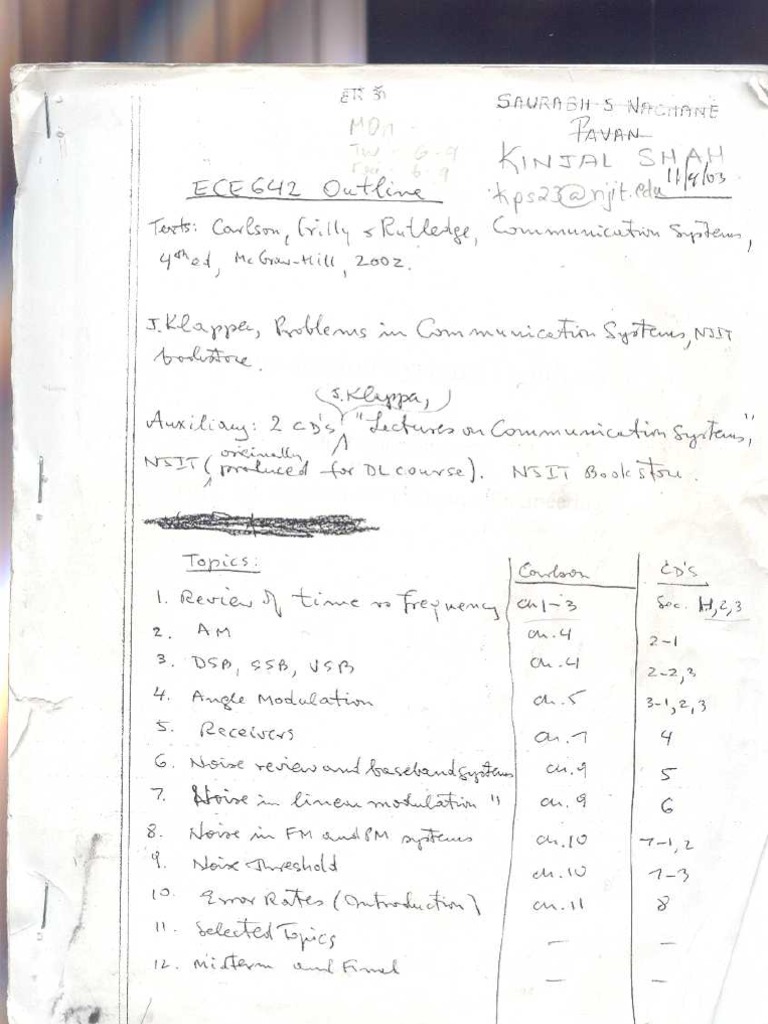 ॐ
SAURABH S NACHANE
PAVAN
MON
KINJAL SHAH
TW - 6-9
6-9
11/9/03
kps23@njit.edu
ECE642 Outline
Texts: Carlson, Crilly & Rutledge, Communication Systems,
4th ed, McGraw-Hill, 2002.
J. Klapper, Problems in Communication Systems, NJIT
bookstore.
(J. Klapper,)
Auxiliary: 2 CD's, "Lectures on Communication Systems",
originally
NJIT (produced for DL course). NJIT Bookstore.
Topics: Carlson CD's
1. Review of time vs frequency ch 1-3 Sec. 1,2,3
2. AM ch. 4 2-1
3. DSB, SSB, VSB ch. 4 2-2,3
4. Angle Modulation ch. 5 3-1,2,3
5. Receivers ch. 7 4
6. Noise review and baseband systems ch. 9 5
7. Noise in linear modulation " ch. 9 6
8. Noise in FM and PM systems ch. 10 7-1,2
9. Noise Threshold ch. 10 7-3
10. Error Rates (Introduction) ch. 11 8
11. Selected Topics — —
12. Midterm and Final — —